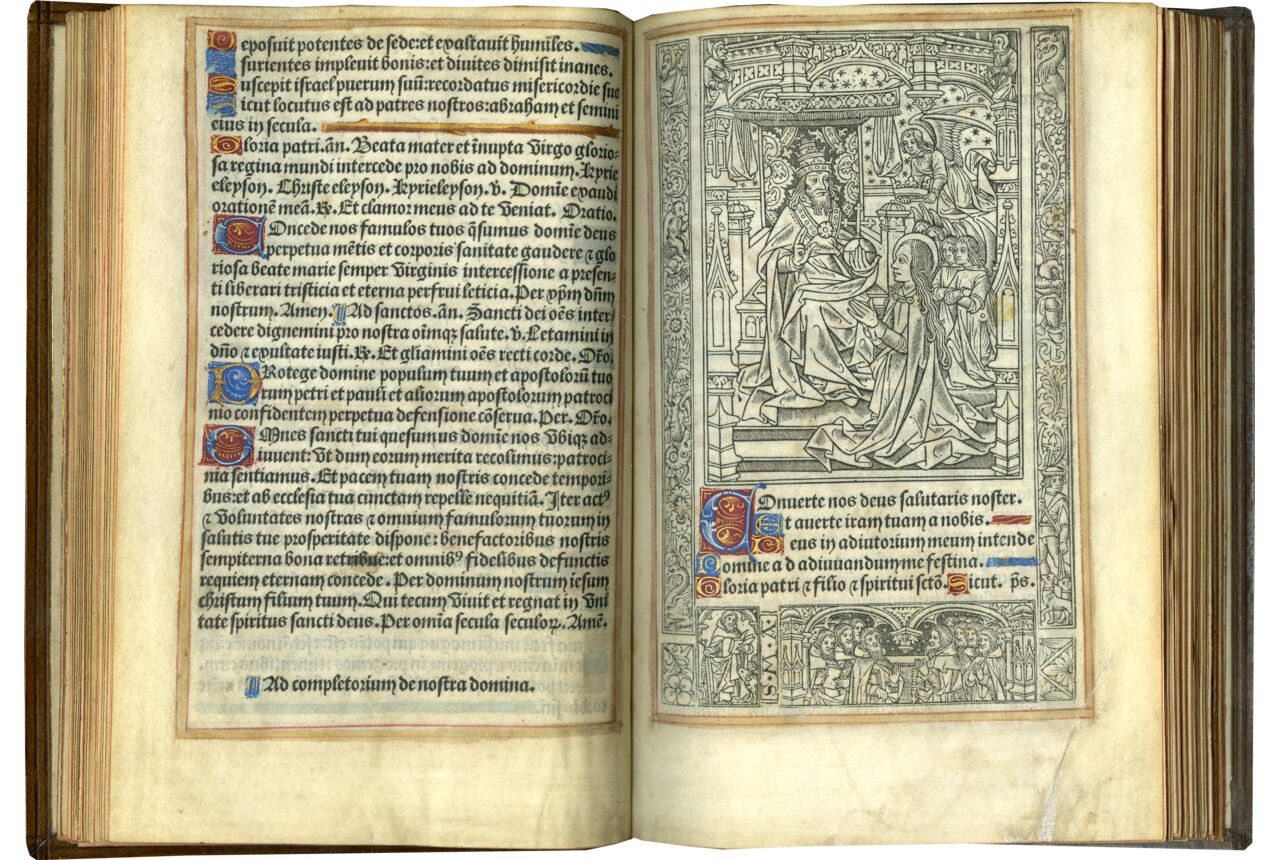 Deposuit potentes de sede:et exaltauit humiles.
Esurientes impleuit bonis:et diuites dimisit inanes.
Suscepit israel puerum suũ:recordatus misericordie sue
Sicut locutus est ad patres nostros:abraham et semini
eius in secula.
Gloria patri.añ. Beata mater et ĩnupta virgo glorio-
sa regina mundi intercede pro nobis ad dominum. Kyrie
eleyson. Christe eleyson. Kyrieleyson. ℣. Domie exaudi
orationẽ meã. ℟. Et clamor meus ad te veniat. Oratio.
COncede nos famulos tuos q̃sumus domie deus
perpetua mẽtis et corporis sanitate gaudere ⁊ glo
riosa beate marie semper virginis intercessione a presen-
ti liberari tristicia et eterna perfrui leticia. Per xp̃m dñm
nostrum. Amen. ¶ Ad sanctos. añ. Sancti dei oẽs inter-
cedere dignemini pro nostra oĩmqꝫ salute. ℣. Letamini in
dño ⁊ exultate iusti. ℟. Et gliamini oẽs recti corde. Oro.
PRotege domine populum tuum et apostolorũ tuo
rum petri et pauli et aliorum apostolorum patroci
nio confidentem perpetua defensione cõserua. Per. Oro.
OMnes sancti tui quesumus domie nos vbiqꝫ ad-
iuuent: vt dum eorum merita recolimus:patroci-
nia sentiamus. Et pacem tuam nostris concede tempori-
bus:et ab ecclesia tua cunctam repelle nequitiã. Iter actꝰ
⁊ voluntates nostras ⁊ omnium famulorum tuorum in
salutis tue prosperitate dispone: benefactoribus nostris
sempiterna bona retribue:et omnibꝰ fidelibus defunctis
requiem eternam concede. Per dominum nostrum iesum
christum filium tuum. Qui tecum viuit et regnat in vni
tate spiritus sancti deus. Per omĩa secula seculoꝝ. Amẽ.
¶ Ad completorium de nostra domina.
COnuerte nos deus salutaris noster.
Et auerte iram tuam a nobis.
Deus in adiutorium meum intende
Domine ad adiuuandum me festina.
Gloria patri ⁊ filio ⁊ spiritui sctõ. Sicut. p̃s.